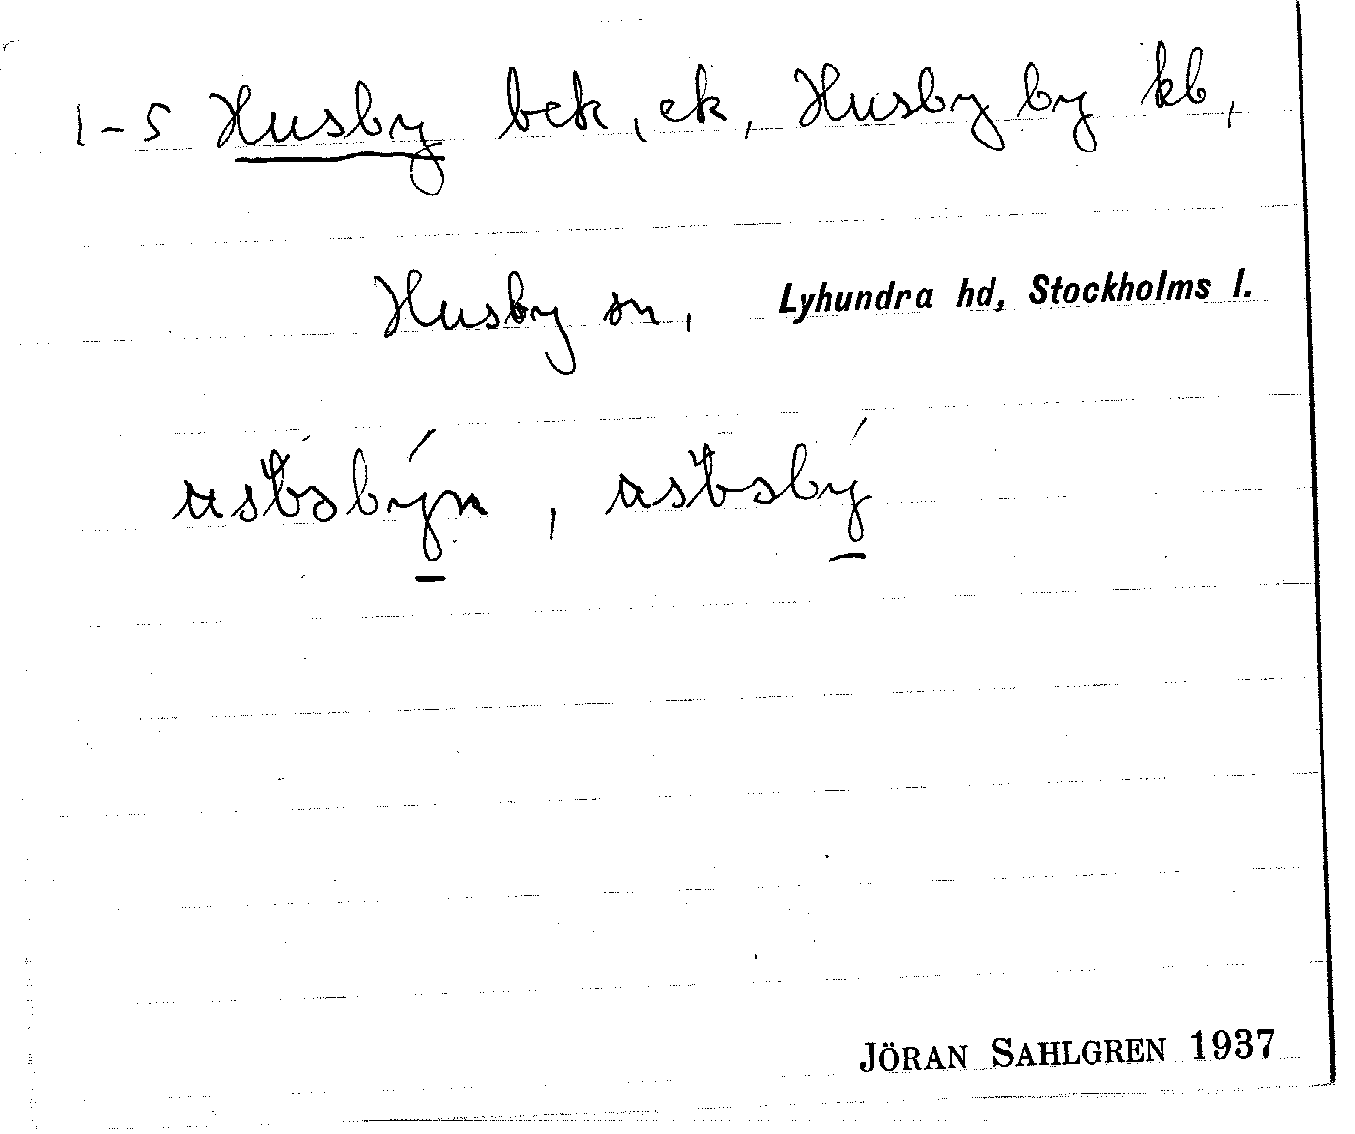 1-5 Husby bek, ek, Husby by kb,
Husby sn, Lyhundra hd, Stockholms l.
JÖRAN SAHLGREN 1937